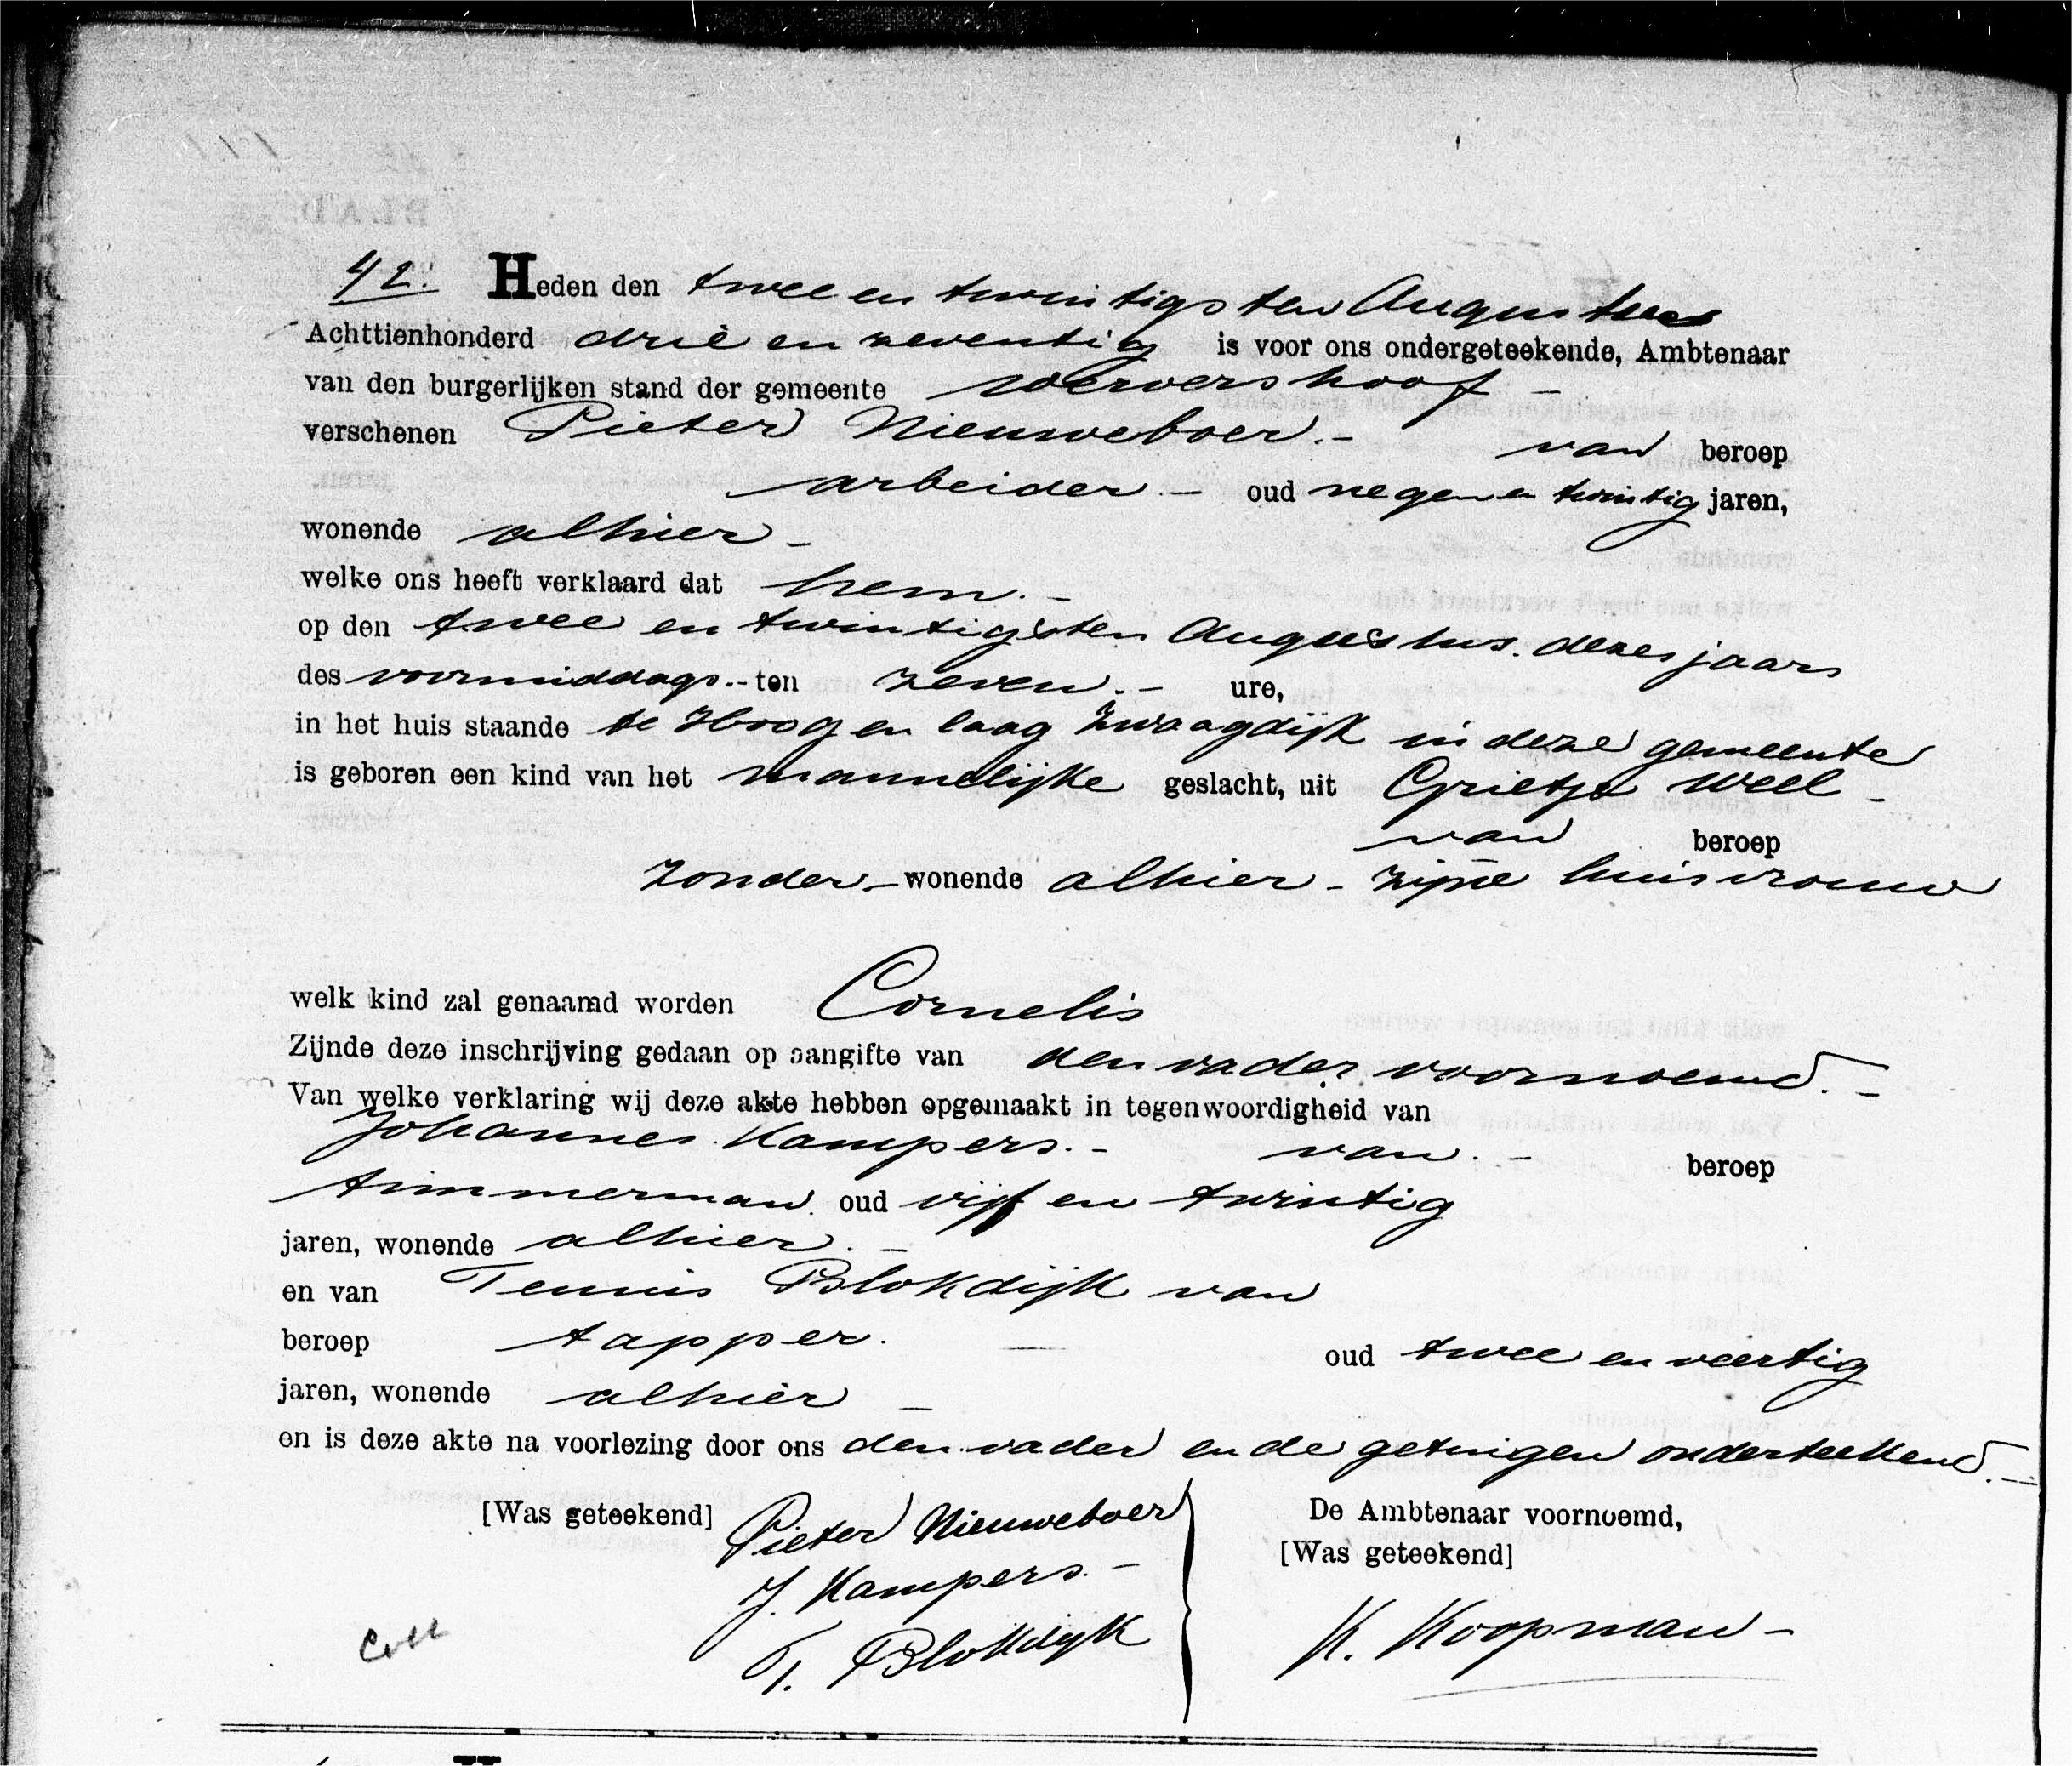 42. Heden den twee en twintigsten Augustus
Achttienhonderd drie en zeventig is voor ons ondergeteekende, Ambtenaar
van den burgerlijken stand der gemeente Wervershoof -
verschenen Pieter Nieuweboer.- van beroep
arbeider - oud negen en twintig jaren,
wonende alhier -
welke ons heeft verklaard dat hem. -
op den twee en twintigsten Augustus. dezes jaars
des voormiddags.- ten zeven. - ure,
in het huis staande te Hoog en laag Zwaagdijk in deze gemeente
is geboren een kind van het mannelijke geslacht, uit Grietje Weel -
van beroep
zonder - wonende alhier - zijne huisvrouw
welk kind zal genaamd worden Cornelis
Zijnde deze inschrijving gedaan op aangifte van den vader voornoemd. -
Van welke verklaring wij deze akte hebben opgemaakt in tegenwoordigheid van
Johannes Kampers. - van. - beroep
timmerman oud vijf en twintig
jaren, wonende alhier. -
en van Teunis Blokdijk van
beroep tapper. - oud twee en veertig
jaren, wonende alhier -
en is deze akte na voorlezing door ons den vader en de getuigen onderteekend. -
[Was geteekend] Pieter Nieuweboer De Ambtenaar voornoemd,
J. Kampers. - [Was geteekend]
T. Blokdijk K. Koopman -
Coll